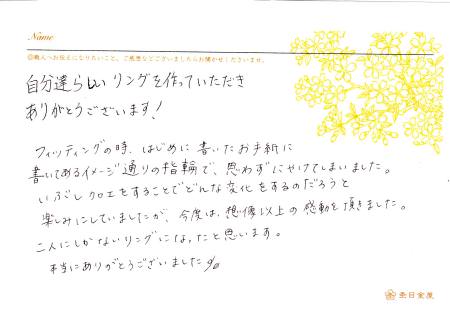 Name
◎職人へお伝えになりたいこと、ご感想などございましたらお聞かせくださいませ。
自分達らしいリングを作っていただき
ありがとうございます!
フィッティングの時、はじめに書いたお手紙に
書いてあるイメージ通りの指輪で、思わずにやけてしまいました。
いぶし加工をすることでどんな変化をするのだろうと
楽しみにしていましたが、今度は、想像以上の感動を頂きました。
二人にしかないリングになったと思います。
本当にありがとうございました
杢目金屋